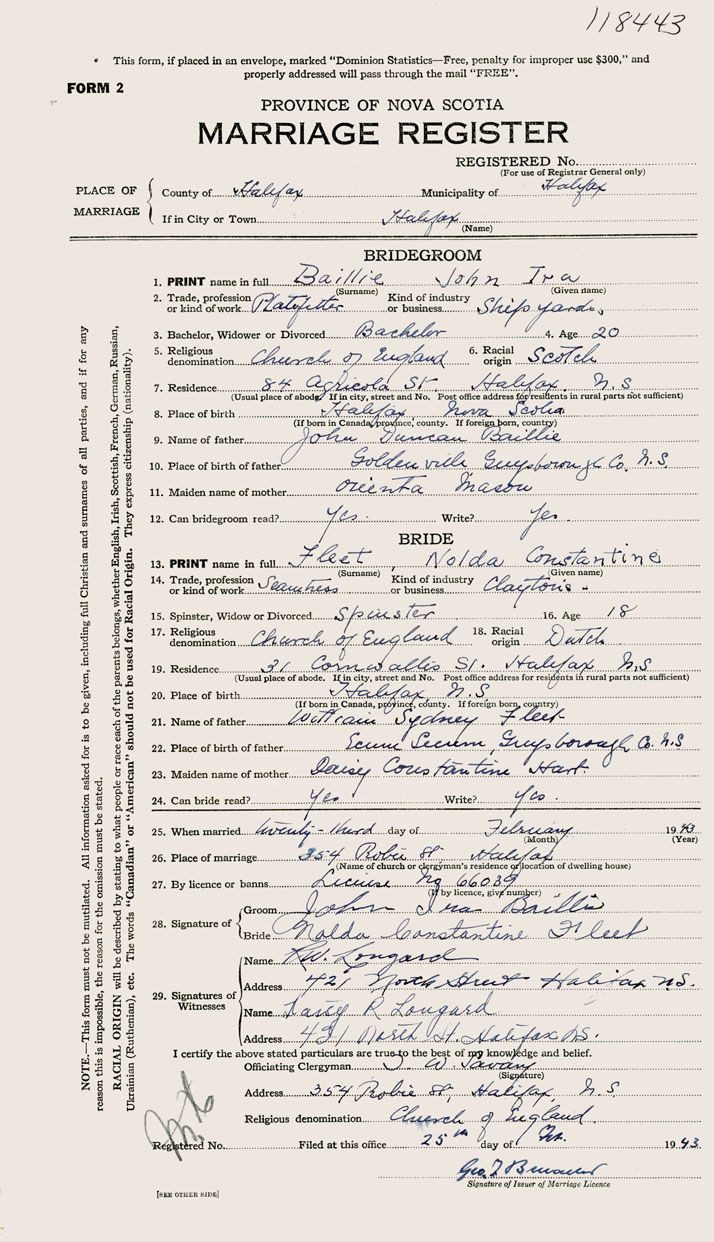 118443
This form, if placed in an envelope, marked "Dominion Statistics—Free, penalty for improper use $300," and
properly addressed will pass through the mail "FREE".
FORM 2
PROVINCE OF NOVA SCOTIA
MARRIAGE REGISTER
REGISTERED No.
(For use of Registrar General only)
PLACE OF MARRIAGE
County of Halifax Municipality of Halifax
If in City or Town Halifax
(Name)
BRIDEGROOM
1. PRINT name in full Baillie John Ira
(Surname) (Given name)
2. Trade, profession or kind of work Platefitter Kind of industry or business Shipyards
3. Bachelor, Widower or Divorced Bachelor 4. Age 20
5. Religious denomination Church of England 6. Racial origin Scotch
7. Residence 84 Agricola St Halifax N.S
(Usual place of abode. If in city, street and No. Post office address for residents in rural parts not sufficient)
8. Place of birth Halifax, Nova Scotia
(If born in Canada, province, county. If foreign born, country)
9. Name of father John Duncan Baillie
10. Place of birth of father Goldenville Guysborough Co. N.S.
11. Maiden name of mother Orienta Mason
12. Can bridegroom read? Yes. Write? Yes.
BRIDE
13. PRINT name in full Fleet, Nolda Constantine
(Surname) (Given name)
14. Trade, profession or kind of work Seamtress Kind of industry or business Claytons -
15. Spinster, Widow or Divorced Spinster 16. Age 18
17. Religious denomination Church of England 18. Racial origin Dutch
19. Residence 31 Cornwallis St. Halifax N.S
(Usual place of abode. If in city, street and No. Post office address for residents in rural parts not sufficient)
20. Place of birth Halifax, N.S.
(If born in Canada, province, county. If foreign born, country)
21. Name of father William Sydney Fleet
22. Place of birth of father Ecum Secum, Guysborough Co. N.S
23. Maiden name of mother Daisy Constantine Hart.
24. Can bride read? Yes Write? Yes.
25. When married twenty-third day of February 1943
(Month) (Year)
26. Place of marriage 354 Robie St, Halifax
(Name of church or clergyman's residence or location of dwelling house)
27. By licence or banns License No 66039
(If by licence, give number)
28. Signature of
Groom John Ira Baillie
Bride Nolda Constantine Fleet
29. Signatures of Witnesses
Name R.W. Longard
Address 421 North Street Halifax N.S.
Name R Longard
Address 421 North St. Halifax N.S.
I certify the above stated particulars are true to the best of my knowledge and belief.
Officiating Clergyman W. Savary
(Signature)
Address 354 Robie St, Halifax, N.S
Religious denomination Church of England.
Registered No. Filed at this office 25th day of Feb. 1943
Geo.
Signature of Issuer of Marriage Licence
[SEE OTHER SIDE]
NOTE.—This form must not be mutilated. All information asked for is to be given, including full Christian and surnames of all parties, and if for any
reason this is impossible, the reason for the omission must be stated.
RACIAL ORIGIN will be described by stating to what people or race each of the parents belongs, whether English, Irish, Scottish, French, German, Russian,
Ukrainian (Ruthenian), etc. The words "Canadian" or "American" should not be used for Racial Origin. They express citizenship (nationality).